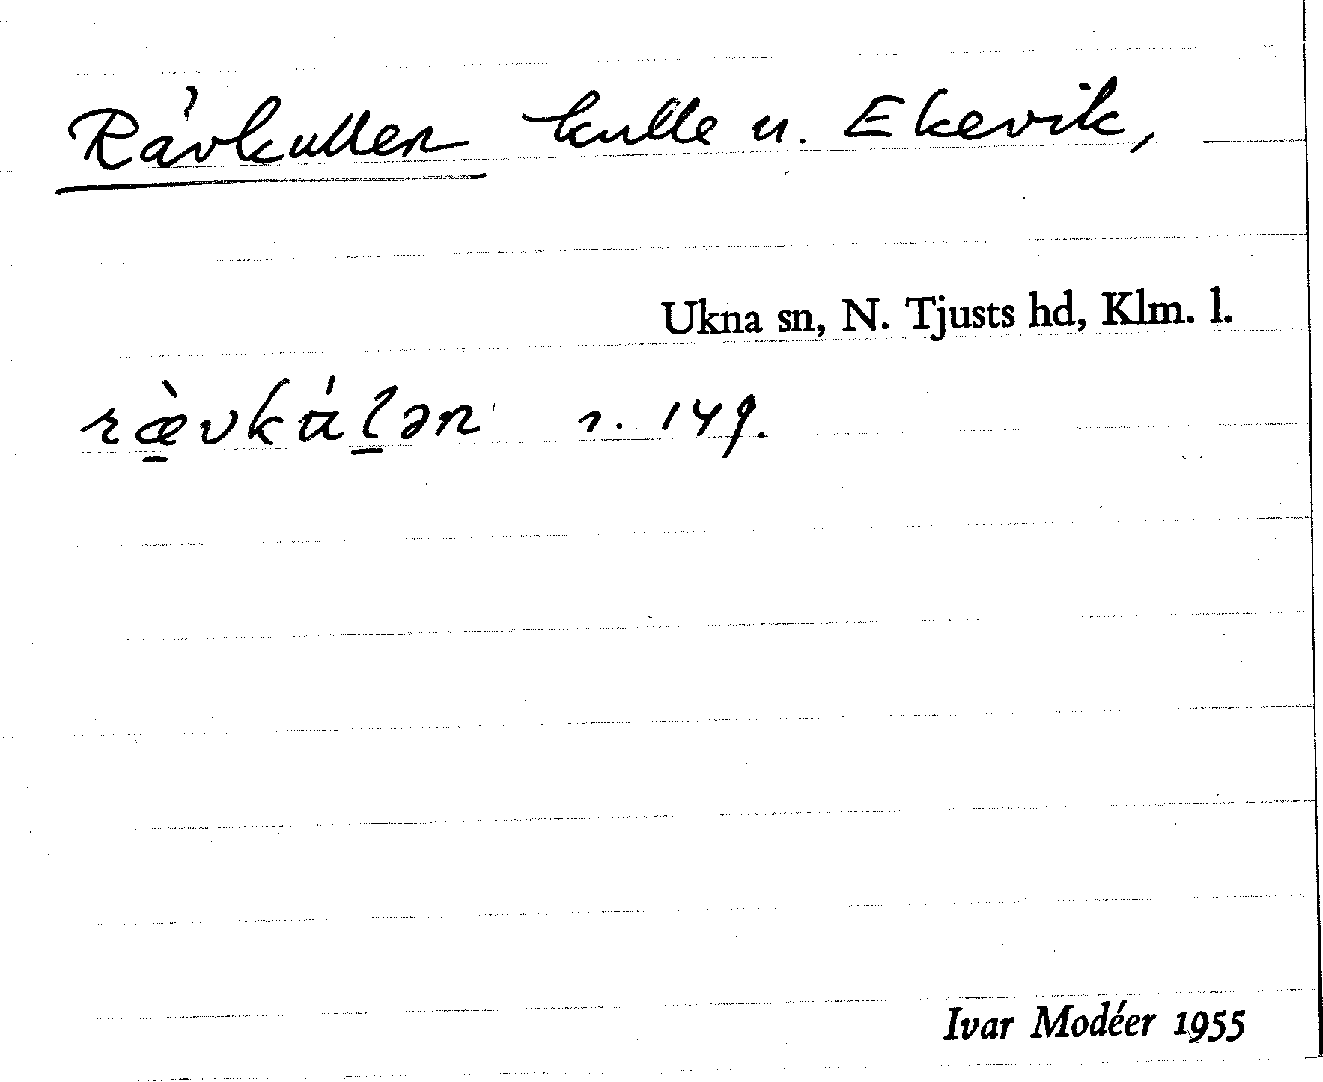 Rävkullen kulle u. Ekevik,
Ukna sn, N. Tjusts hd, Klm. l.
ræ̠̀vkɑ́l̠ən
Ivar Modéer 1955